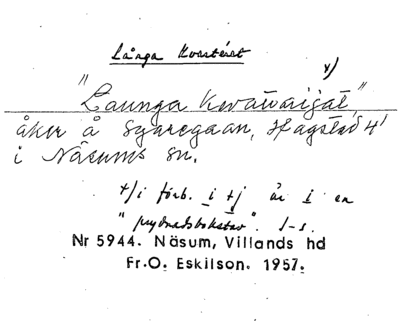 Långa Kvarteret
x)
"Launga Kevawaijat"
åker å Syaregaan, Hagstad 4'
i Näsums sn.
x/i förb. i + j är i en
"prydnadsbokstav". I-s.
Nr 5944. Näsum, Villands hd
Fr.O. Eskilson. 1957.